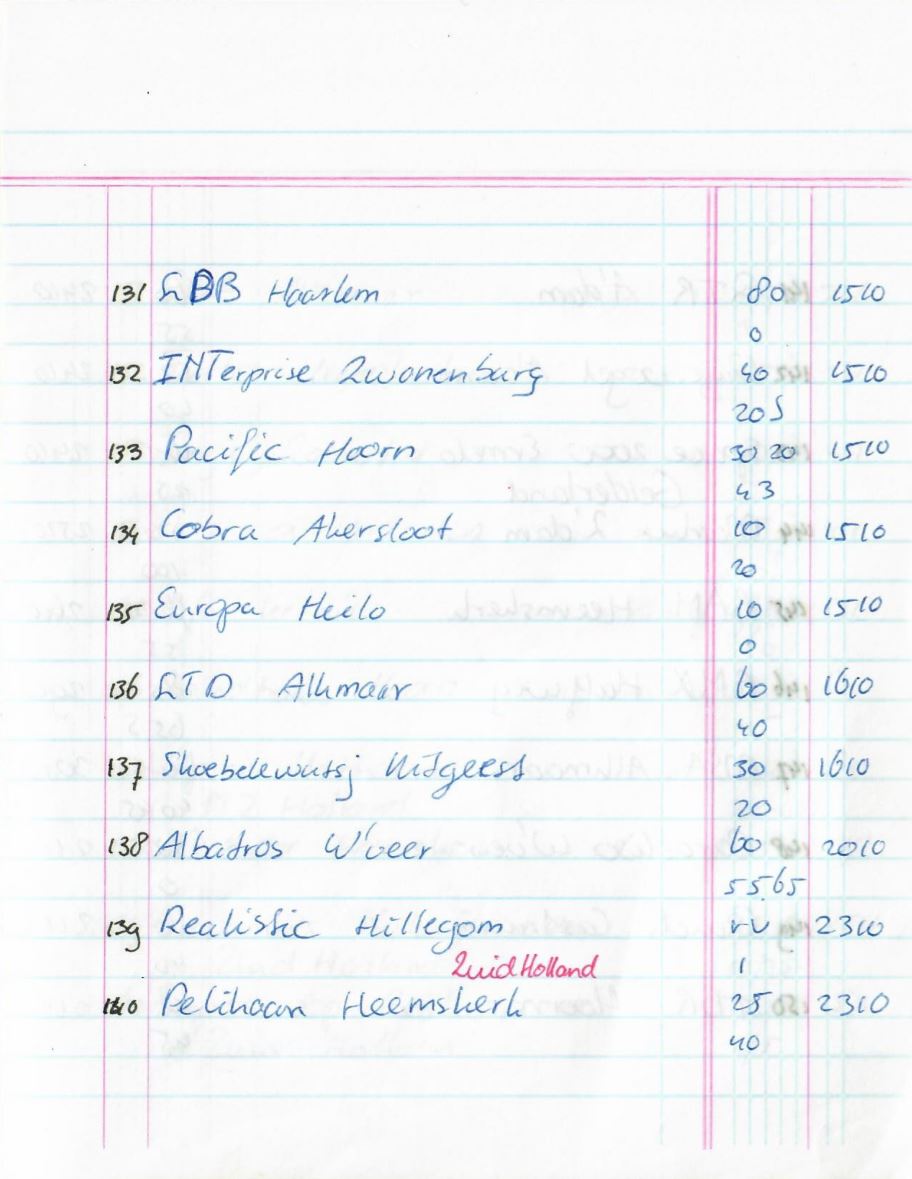 131 LBB Haarlem 80 1510
0
132 INTerprise Zwanenburg 40 1510
20 S
133 Pacific Hoorn 30 20 1510
43
134 Cobra Akersloot 10 1510
20
135 Europa Heilo 10 1510
0
136 LTD Alkmaar 60 1610
40
137 Uitgeest 30 1610
20
138 Albatros W'veer 60 2010
55.65
139 Realistic Hillegom rv 2310
Zuid Holland 1
140 Pelikaan Heemskerk 25 2310
40